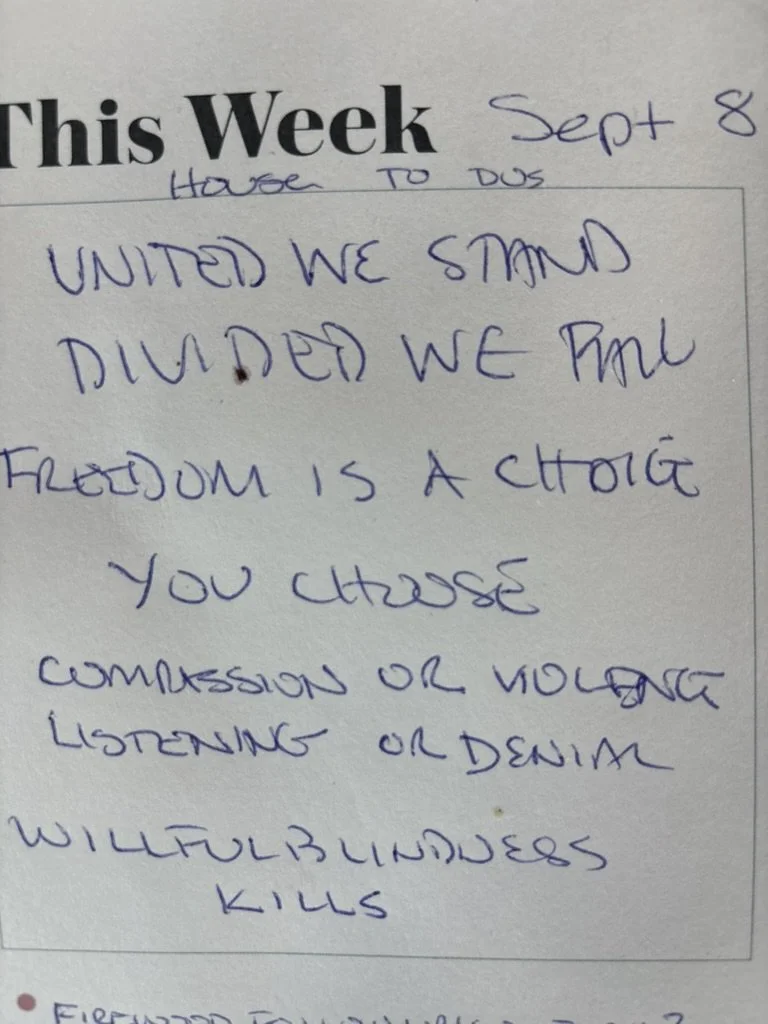 This Week Sept 8
House TO DOS
UNITED WE STAND
DIVIDED WE FALL
FREEDOM IS A CHOICE
YOU CHOOSE
COMPASSION OR VIOLENCE
LISTENING OR DENIAL
WILLFUL BLINDNESS
KILLS
FIREWOOD